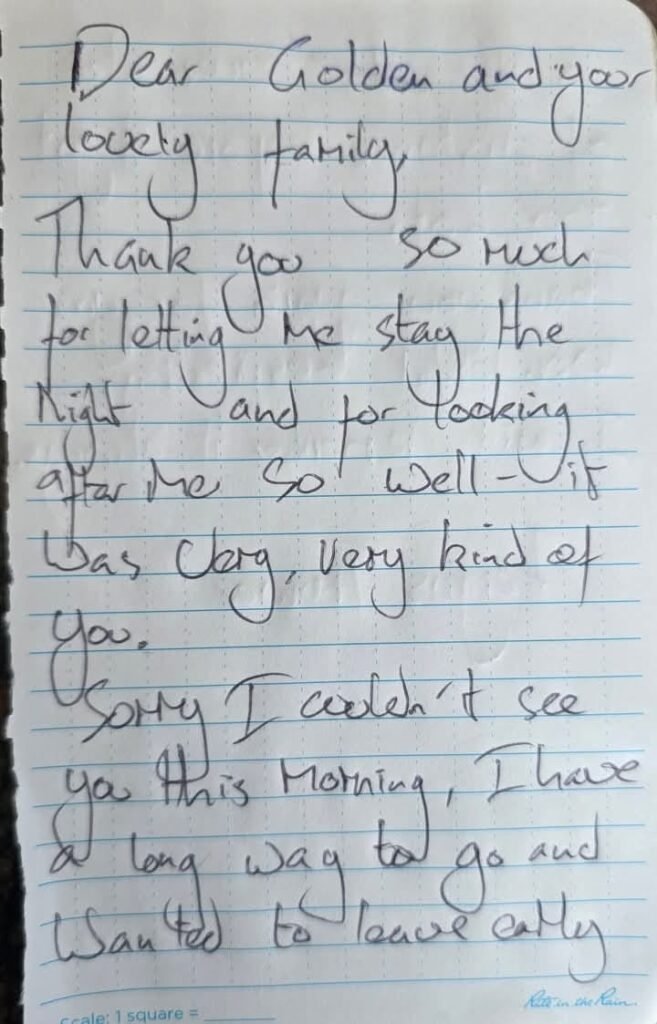 Dear Golden and your
lovely family,
Thank you so much
for letting me stay the
Night and for looking
after me so well - it
was very, very kind of
you.
Sorry I couldn't see
you this morning, I have
a long way to go and
wanted to leave early
scale: 1 square = ________
Rite in the Rain